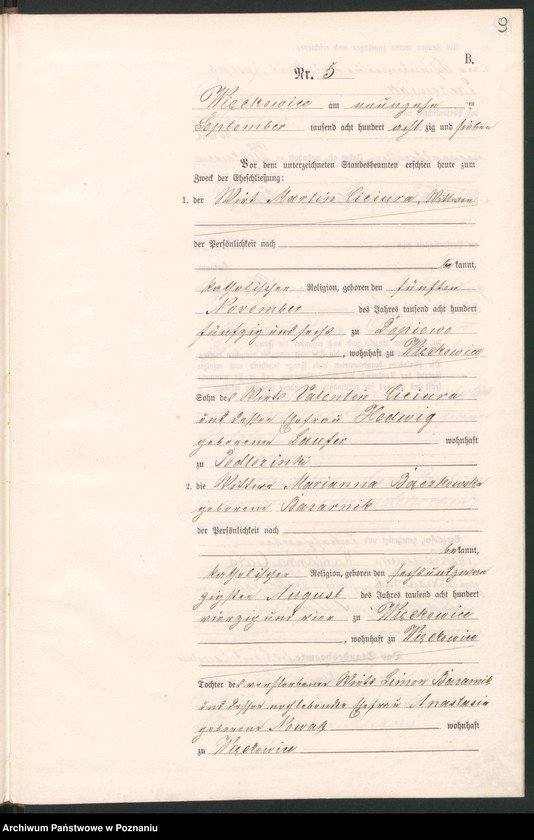 9
B.
Nr. 5
Więckowice am neunzehn ten
September tausend acht hundert achtzig und sieben
Vor dem unterzeichneten Standesbeamten erschien heute zum
Zweck der Eheschließung:
1. der Wirt Martin Ciciura, Wittwer
der Persönlichkeit nach
be kannt,
katholischer Religion, geboren den fünften
November des Jahres tausend acht hundert
fünfzig und sechs zu Lopiewo
, wohnhaft zu Więckowice
Sohn des Wirts Valentin Ciciura
und dessen Ehefrau Hedwig
geborene Laufer wohnhaft
zu Podlozinki
2. die Wittwe Marianna Bączkowska
geborene Bazarnik
der Persönlichkeit nach
be kannt,
katholischer Religion, geboren den sechsundzwan
zigsten August des Jahres tausend acht hundert
vierzig und vier zu Więckowice
, wohnhaft zu Więckowice
Tochter des verstorbenen Wirts Simon Bazarnik
und dessen noch lebender Ehefrau Anastasia
geborene Nowak wohnhaft
zu Więckowice
Archiwum Państwowe w Poznaniu